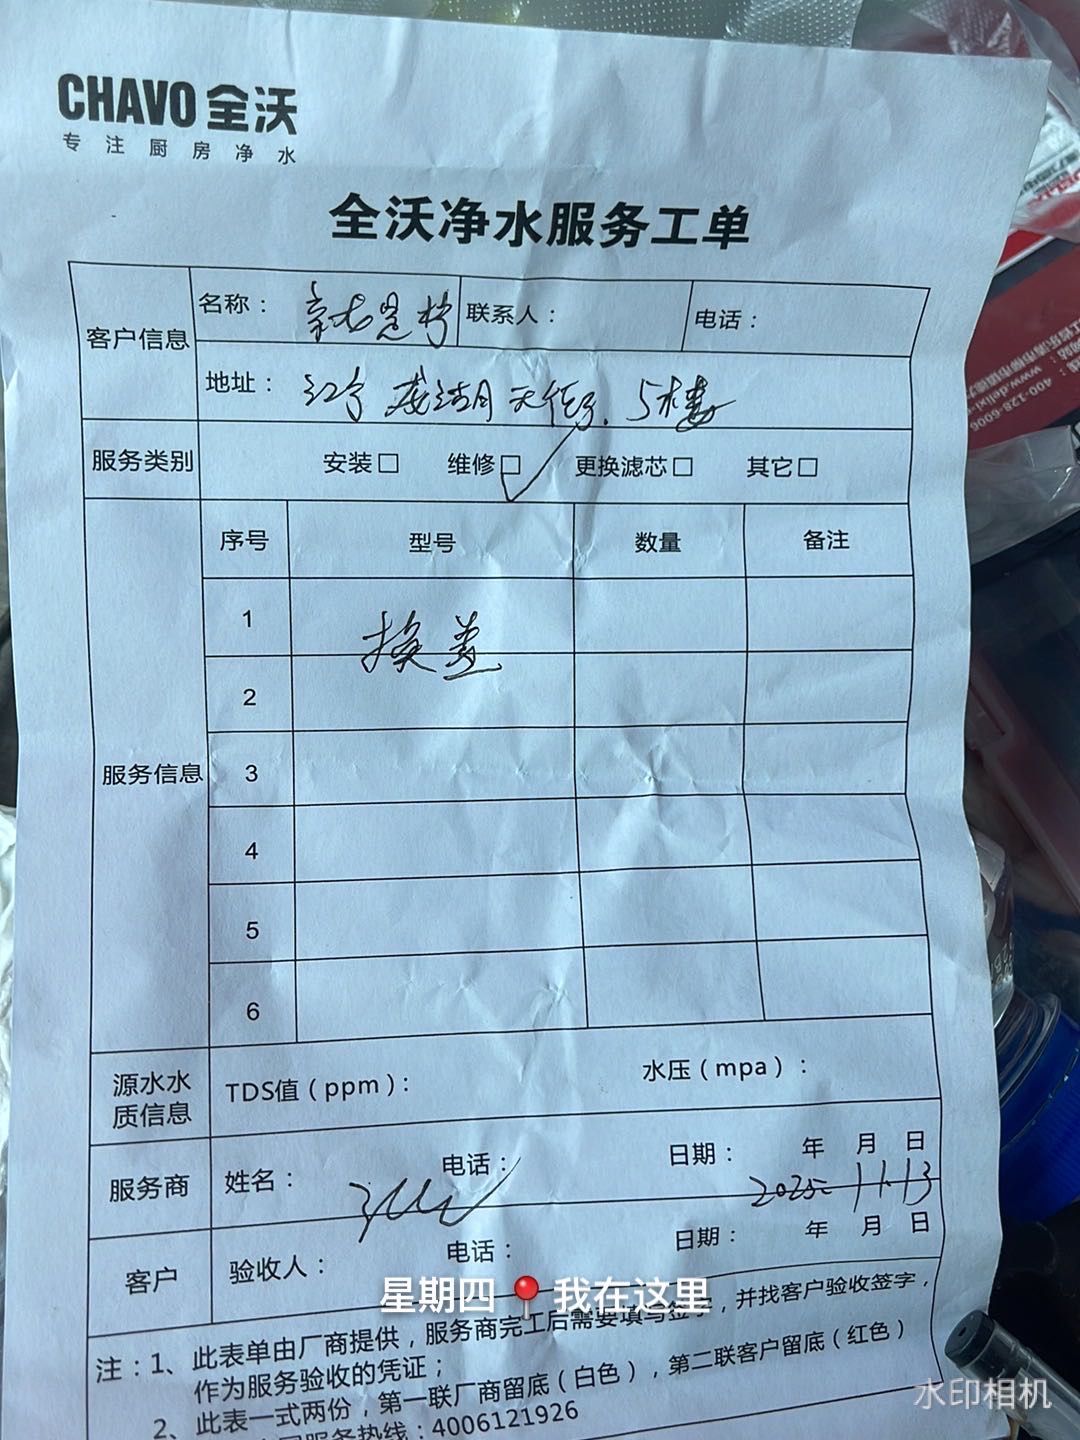 CHAVO 全沃
专注厨房净水
全沃净水服务工单
客户信息
名称：
联系人：
电话：
地址：江宁 天街 5楼
服务类别
安装□ 维修□ 更换滤芯□ 其它□
服务信息
序号 型号 数量 备注
1
换盖
2
3
4
5
6
源水水质信息
TDS值（ppm）：
水压（mpa）：
服务商
姓名：
电话：
日期： 年 月 日
2025 11.13
客户
验收人：
电话：
日期： 年 月 日
星期四 📍我在这里
注：1、此表单由厂商提供，服务商完工后需要填写签字，并找客户验收签字，
作为服务验收的凭证；
2、此表一式两份，第一联厂商留底（白色），第二联客户留底（红色）
服务热线：4006121926
水印相机
400-128-6006